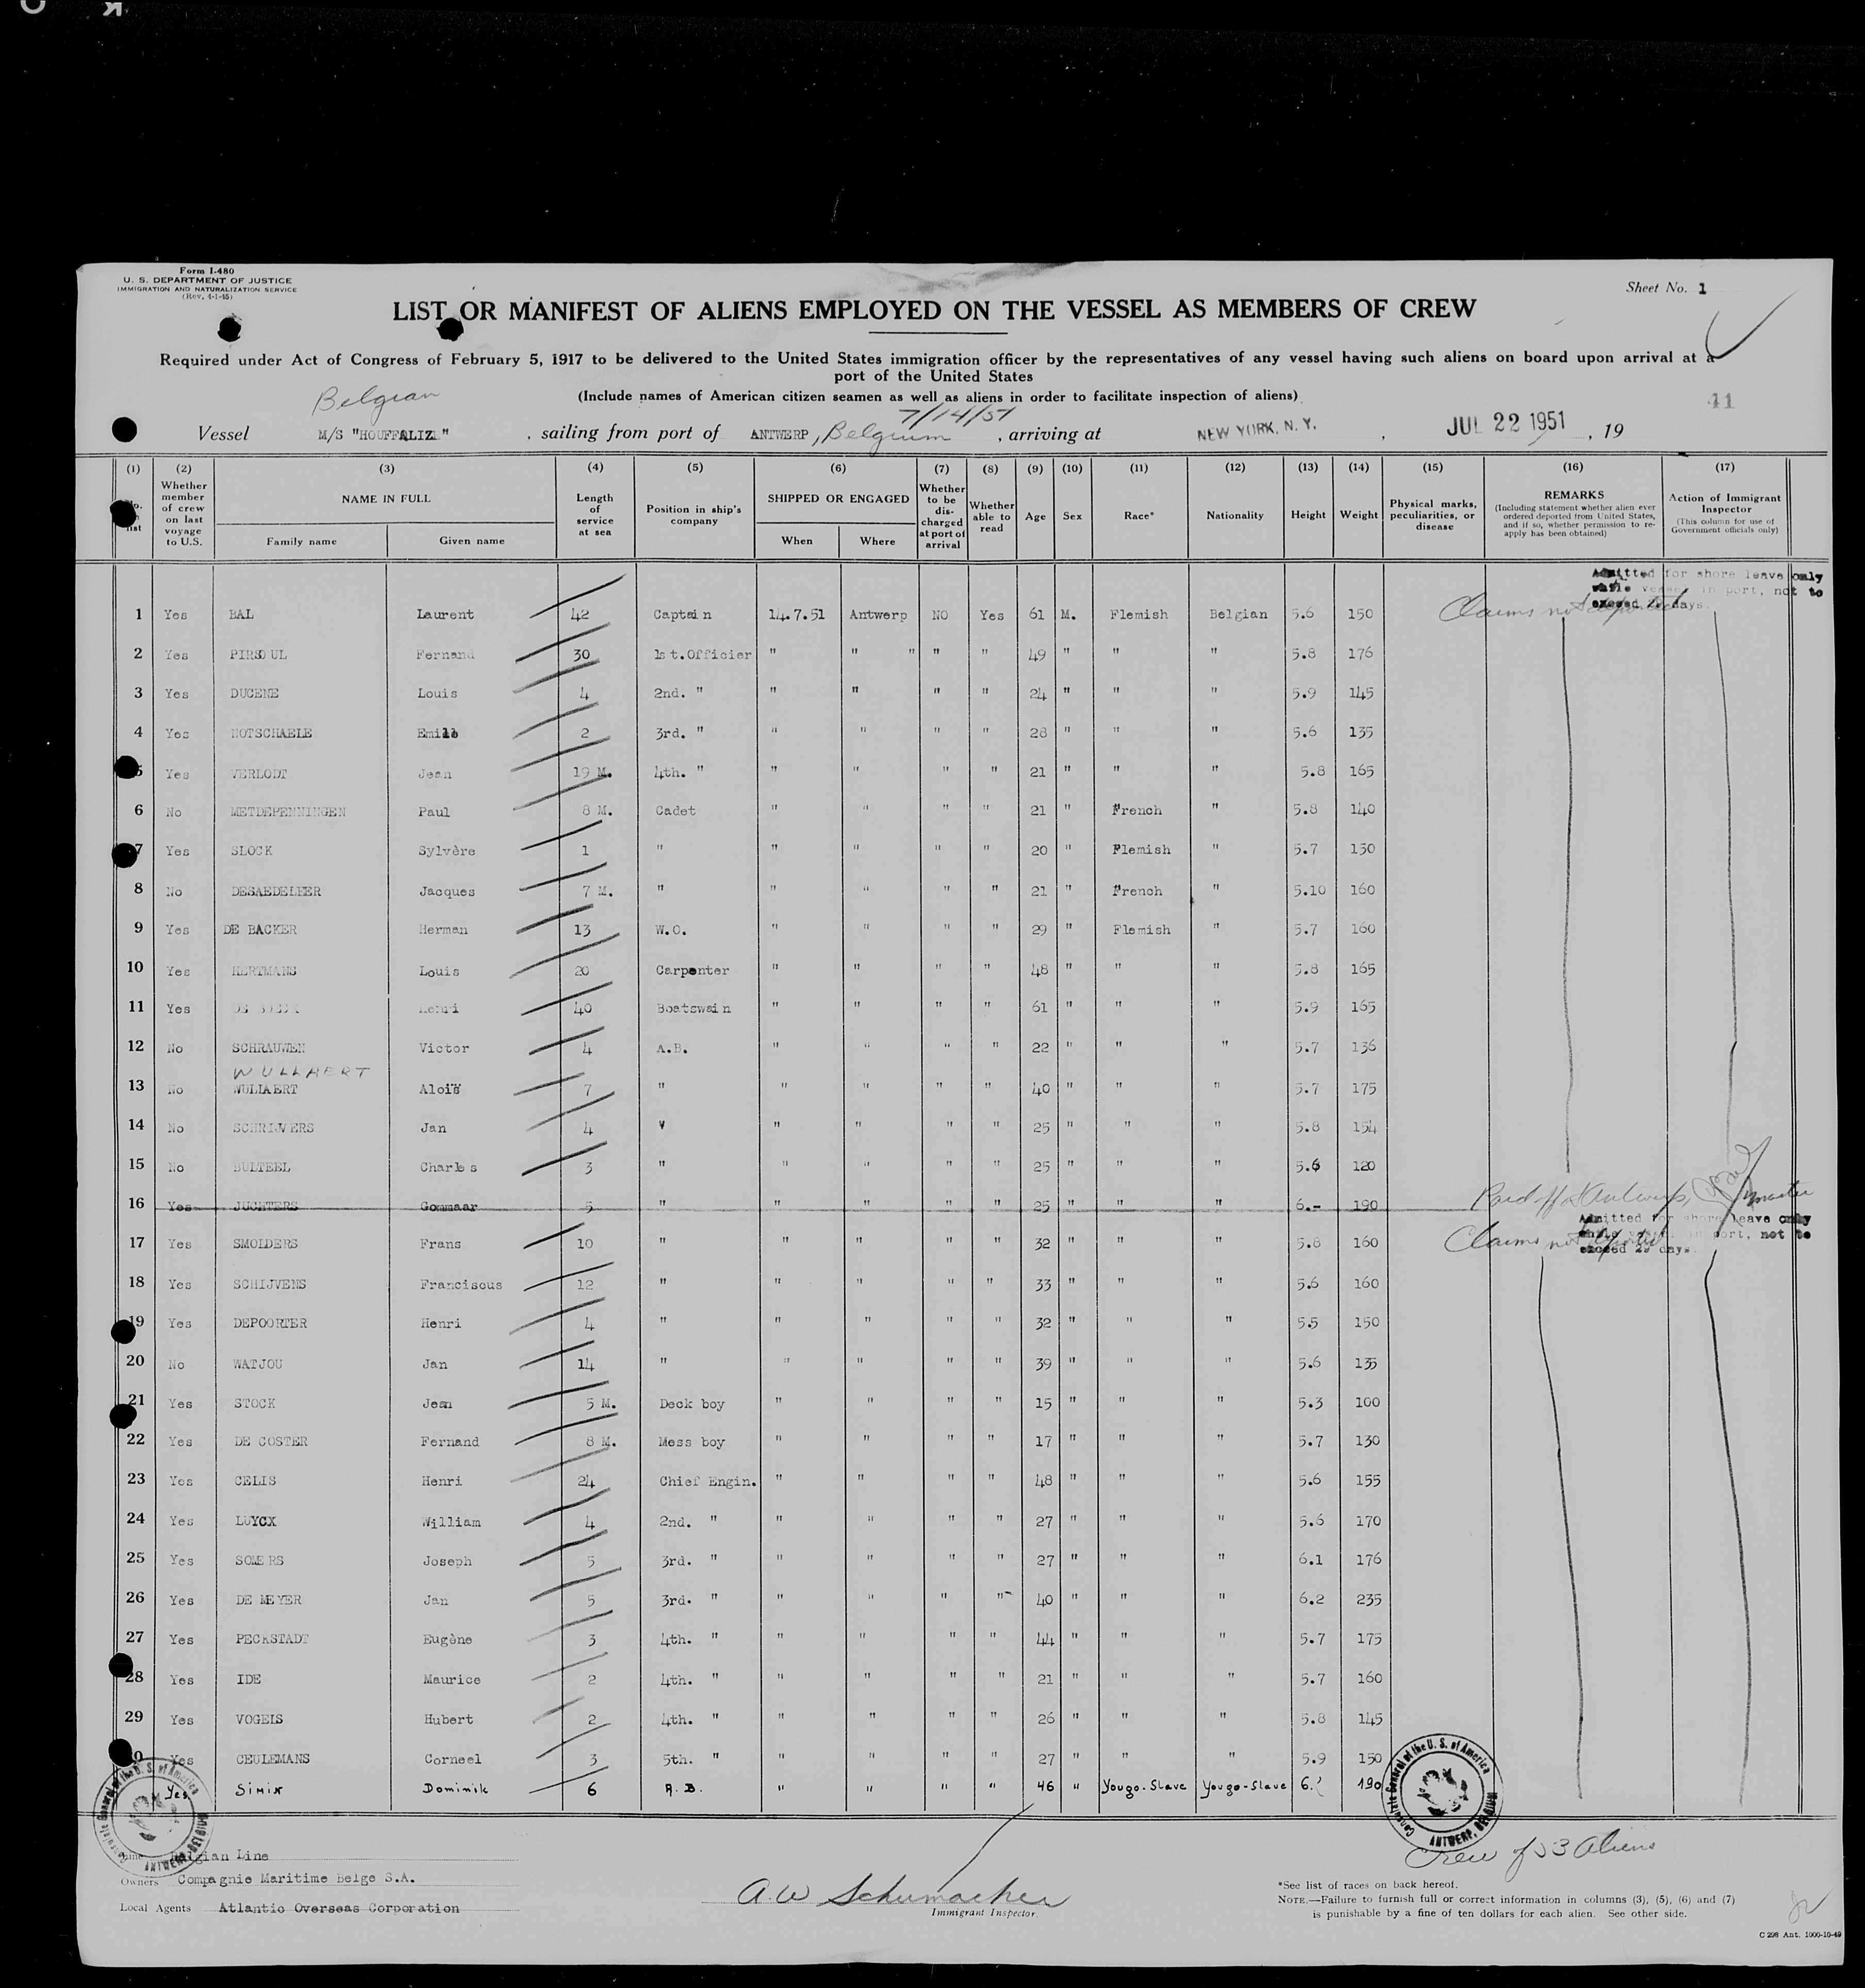 Form I-480
U. S. DEPARTMENT OF JUSTICE
IMMIGRATION AND NATURALIZATION SERVICE
(Rev. 4-1-45)
Sheet No. 1
LIST OR MANIFEST OF ALIENS EMPLOYED ON THE VESSEL AS MEMBERS OF CREW
Required under Act of Congress of February 5, 1917 to be delivered to the United States immigration officer by the representatives of any vessel having such aliens on board upon arrival at a
port of the United States
(Include names of American citizen seamen as well as aliens in order to facilitate inspection of aliens)
Belgian 7/14/51 41
Vessel M/S "HOUFFALIZE", sailing from port of ANTWERP, Belgium, arriving at NEW YORK, N. Y., JUL 22 1951, 19
(1) (2) (3) (4) (5) (6) (7) (8) (9) (10) (11) (12) (13) (14) (15) (16) (17)
No. on list Whether member of crew on last voyage to U.S. NAME IN FULL Family name Given name Length of service at sea Position in ship's company SHIPPED OR ENGAGED When Where Whether to be discharged at port of arrival Whether able to read Age Sex Race* Nationality Height Weight Physical marks, peculiarities, or disease REMARKS (Including statement whether alien ever ordered deported from United States, and if so, whether permission to re-apply has been obtained) Action of Immigrant Inspector (This column for use of Government officials only)
Admitted for shore leave only
while vessel in port, not to
exceed 29 days.
1 Yes BAL Laurent 42 Captain 14.7.51 Antwerp NO Yes 61 M. Flemish Belgian 5.6 150 Claims not deported
2 Yes PIRSOUL Fernand 30 1st.Officier " " " " " 49 " " " 5.8 176
3 Yes DUCENE Louis 4 2nd. " " " " " 24 " " " 5.9 145
4 Yes NOTSCHAELE Emile 2 3rd. " " " " " 28 " " " 5.6 135
5 Yes VERLODT Jean 19 M. 4th. " " " " " 21 " " " 5.8 165
6 No METDEPENNINGEN Paul 8 M. Cadet " " " " 21 " French " 5.8 140
7 Yes SLOCK Sylvère 1 " " " " " 20 " Flemish " 5.7 130
8 No DESAEDELEER Jacques 7 M. " " " " " 21 " French " 5.10 160
9 Yes DE BACKER Herman 13 W.O. " " " " 29 " Flemish " 5.7 160
10 Yes HERTMANS Louis 20 Carpenter " " " " 48 " " " 5.8 165
11 Yes DE Henri 40 Boatswain " " " " 61 " " " 5.9 165
12 No SCHRAUWEN Victor 4 A.B. " " " " 22 " " " 5.7 136
WULLAERT
13 No WULLAERT Aloïs 7 " " " " " 40 " " " 5.7 175
14 No SCHRIJVERS Jan 4 " " " " " 25 " " " 5.8 154
15 No BULTEEL Charles 3 " " " " " 25 " " " 5.6 120
16 Yes JUCHTERS Gommaar 5 " " " " " 25 " " " 6.- 190 Paid off at Antwerp, master
Admitted for shore leave only
while vessel in port, not to
exceed 29 days.
17 Yes SMOLDERS Frans 10 " " " " " 32 " " " 5.8 160 Claims not deported
18 Yes SCHIJVENS Franciscus 12 " " " " " 33 " " " 5.6 160
19 Yes DEPOORTER Henri 4 " " " " " 32 " " " 5.5 150
20 No WATJOU Jan 14 " " " " " 39 " " " 5.6 135
21 Yes STOCK Jean 5 M. Deck boy " " " " 15 " " " 5.3 100
22 Yes DE COSTER Fernand 8 M. Mess boy " " " " 17 " " " 5.7 130
23 Yes CELIS Henri 24 Chief Engin. " " " " 48 " " " 5.6 155
24 Yes LUYCX William 4 2nd. " " " " " 27 " " " 5.6 170
25 Yes SOMERS Joseph 5 3rd. " " " " " 27 " " " 6.1 176
26 Yes DE MEYER Jan 5 3rd. " " " " " 40 " " " 6.2 235
27 Yes PECKSTADT Eugène 3 4th. " " " " " 44 " " " 5.7 175
28 Yes IDE Maurice 2 4th. " " " " " 21 " " " 5.7 160
29 Yes VOGELS Hubert 2 4th. " " " " " 26 " " " 5.8 145
30 Yes CEULEMANS Corneel 3 5th. " " " " " 27 " " " 5.9 150
Yes Simix Dominik 6 A.B. " " " " 46 " Yougo-Slave Yougo-Slave 6. 190
Consulate General of the U. S. of America ANTWERP, BELGIUM
Consulate General of the U. S. of America ANTWERP, BELGIUM
Crew of 53 Aliens
Line Belgian Line
Owners Compagnie Maritime Belge S.A.
Local Agents Atlantic Overseas Corporation
A.W Schumacher
Immigrant Inspector.
*See list of races on back hereof.
NOTE.—Failure to furnish full or correct information in columns (3), (5), (6) and (7)
is punishable by a fine of ten dollars for each alien. See other side.
C 298 Ant. 1000-10-49